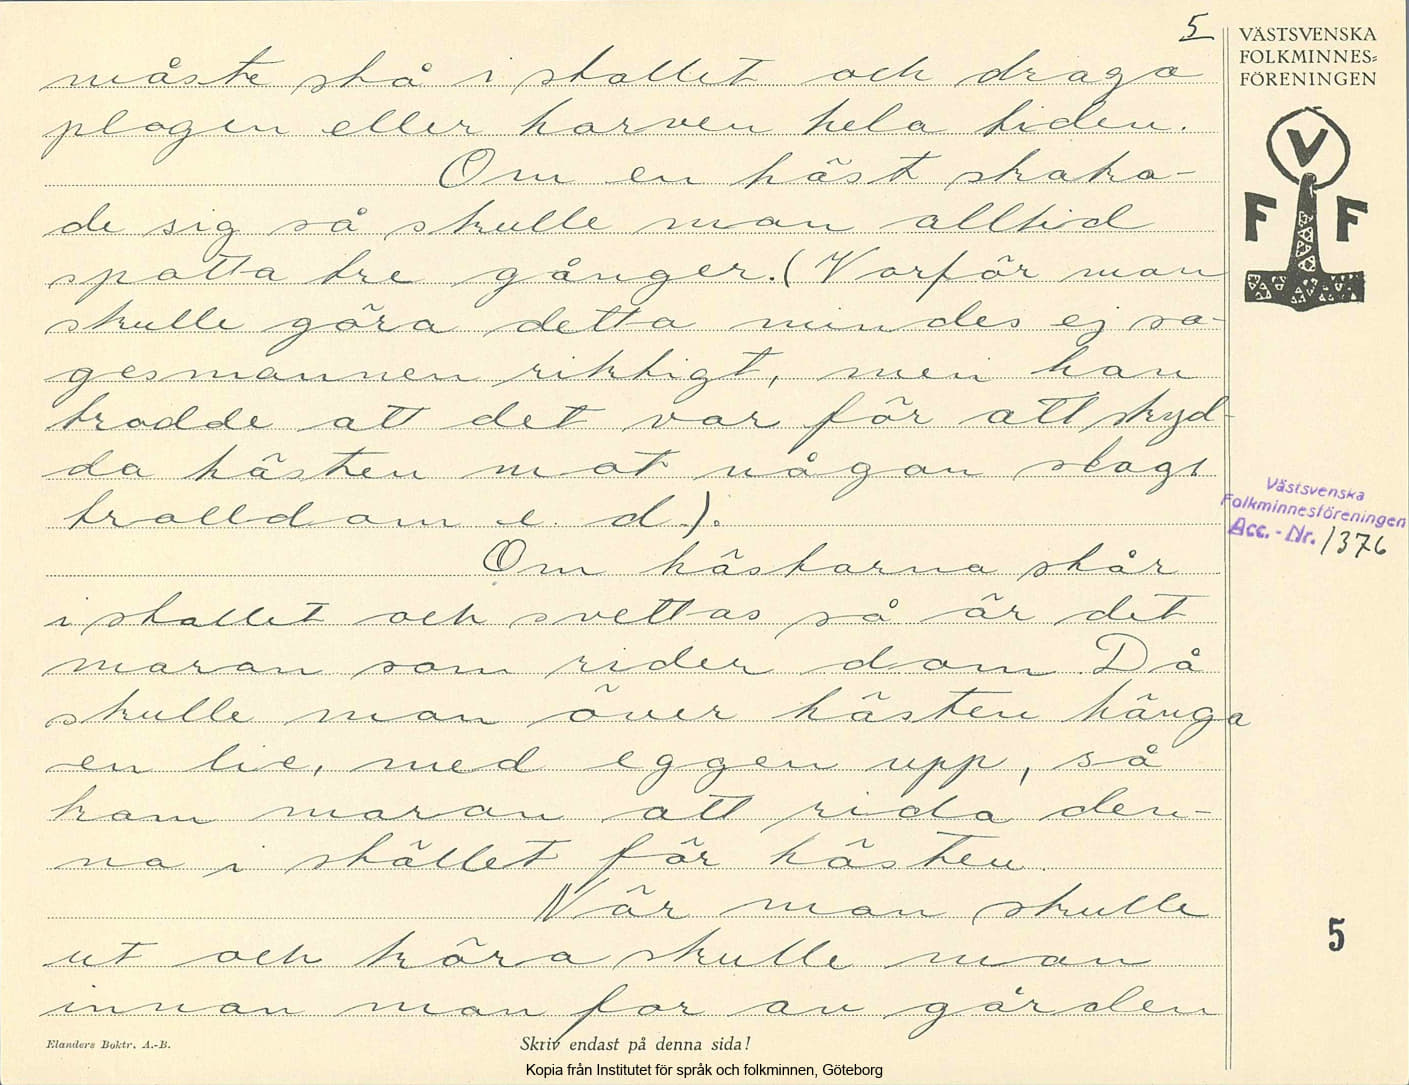 5
VÄSTSVENSKA
FOLKMINNES=
FÖRENINGEN
V
F F
måste stå i stallet och draga
plogen eller harven hela tiden.
Om en häst skaka-
de sig så skulle man alltid
spotta tre gånger. (Varför man
skulle göra detta mindes ej sa-
gesmannen riktigt, men han
trodde att det var för att skyd-
da hästen mot någon slags
trolldom e. d.).
Västsvenska
Folkminnesföreningen
Acc. - Nr. 1376
Om hästarna står
i stallet och svettas så är det
maran som rider dom. Då
skulle man över hästen hänga
en lie, med eggen upp, så
kom maran att rida den-
na i stället för hästen.
När man skulle
ut och köra skulle man
innan man for av gården
5
Elanders Boktr. A.-B.
Skriv endast på denna sida!
Kopia från Institutet för språk och folkminnen, Göteborg